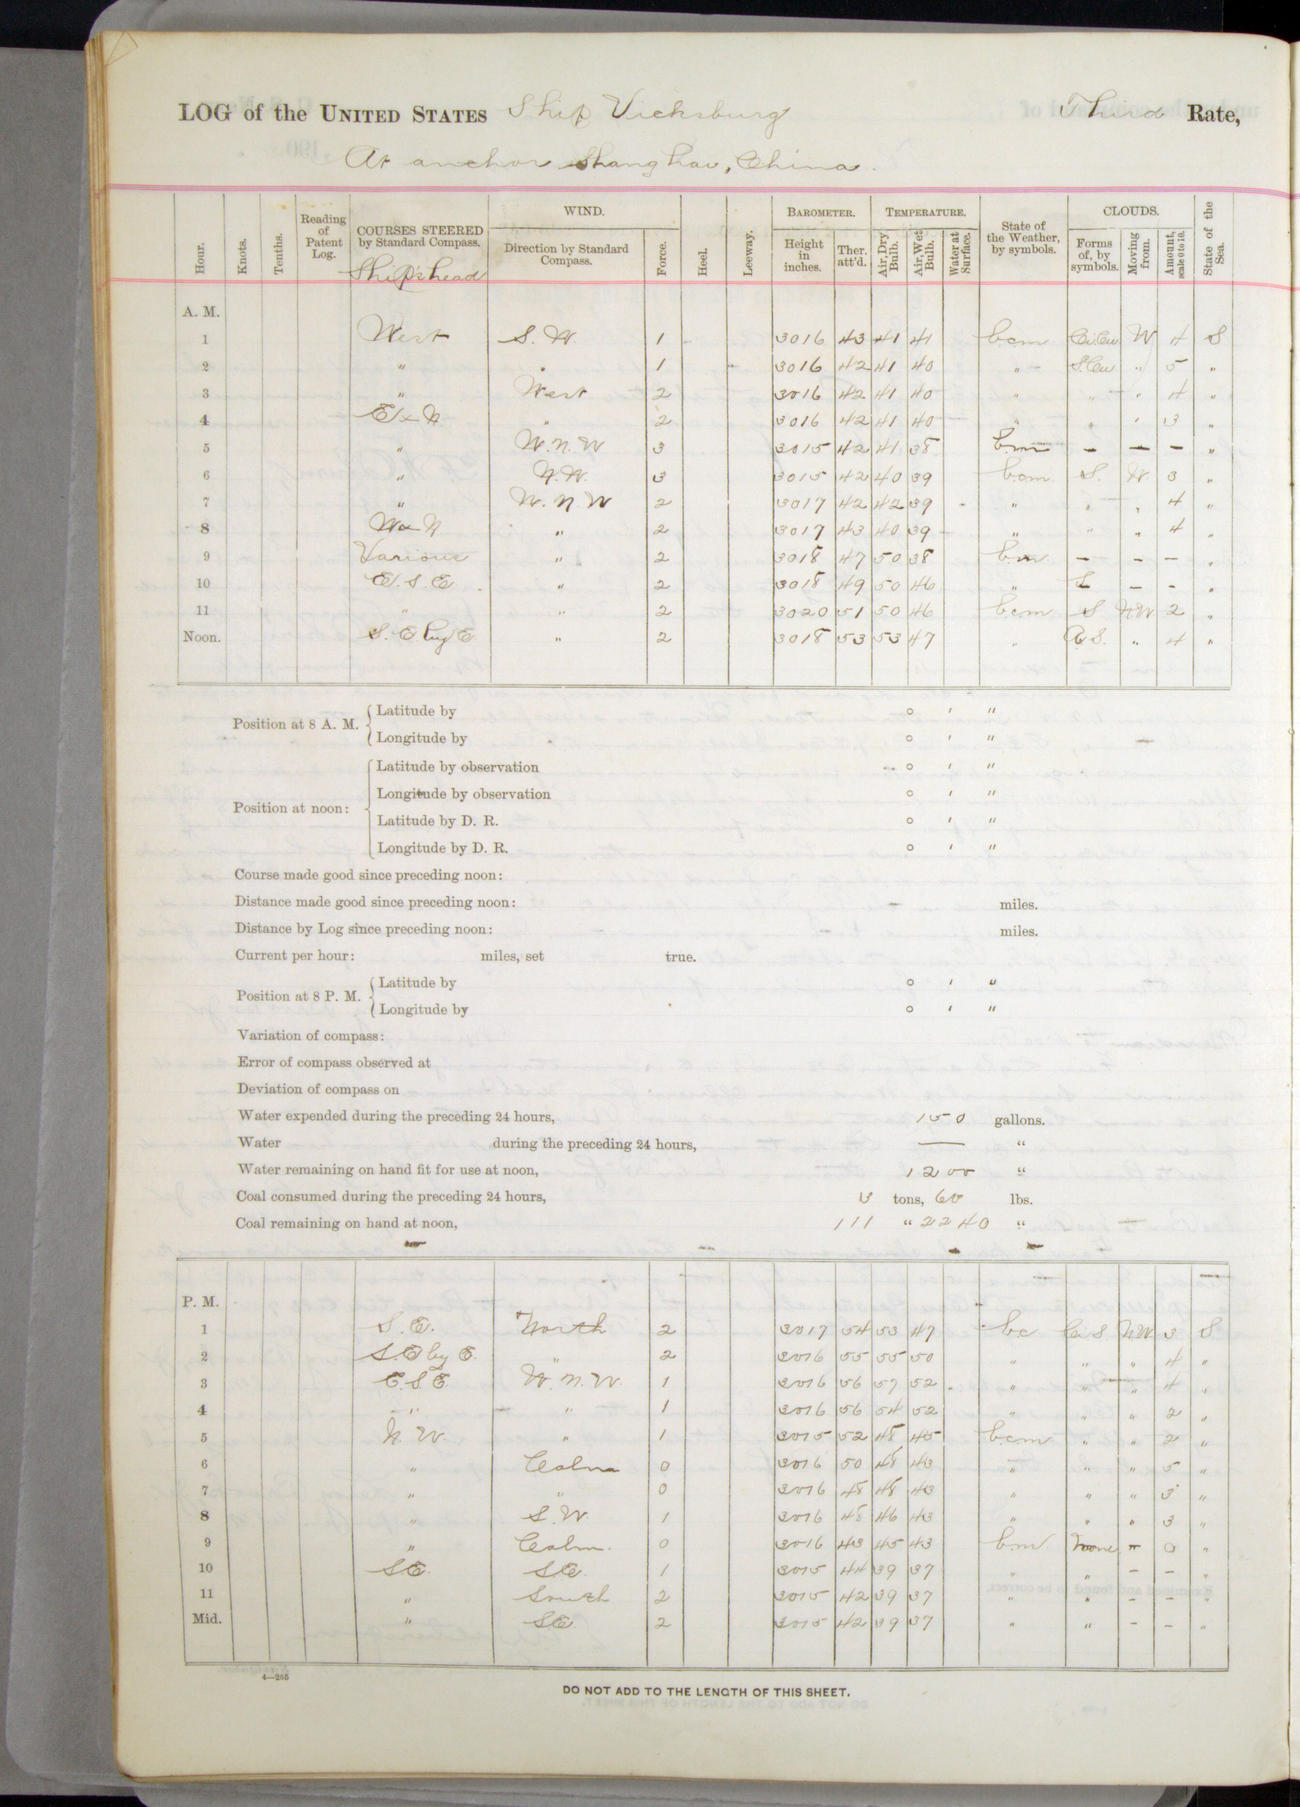 LOG of the UNITED STATES Ship Vicksburg Third Rate,
At anchor Shanghai, China.
Hour. Knots. Tenths. Reading of Patent Log. COURSES STEERED by Standard Compass. WIND. Direction by Standard Compass. Force. Heel. Leeway. BAROMETER. Height in inches. Ther. att'd. TEMPERATURE. Air, Dry Bulb. Air, Wet Bulb. Water at Surface. State of the Weather, by symbols. CLOUDS. Forms of, by symbols. Moving from. Amount, scale 0 to 10. State of the Sea.
Ship's head
A. M.
1 West S. W. 1 3016 43 41 41 bcm Ci.Cu W 4 S
2 " " 1 3016 42 41 40 " S.Cu " 5 "
3 " West 2 3016 42 41 40 " " " 4 "
4 ExN " 2 3016 42 41 40 " " " 3 "
5 " W.N.W 3 3015 42 41 38 bm — — — "
6 " N.W. 3 3015 42 40 39 bcm S. W. 3 "
7 " W.N.W 2 3017 42 42 39 " " " 4 "
8 WxN " 2 3017 43 40 39 " " " 4 "
9 Various " 2 3018 47 50 38 bm — — — "
10 E.S.E. " 2 3018 49 50 46 " — — "
11 " " 2 3020 51 50 46 bcm S NW 2 "
Noon. S. E by E " 2 3018 53 53 47 " S. " 4 "
Position at 8 A. M. Latitude by ° ' "
Longitude by ° ' "
Position at noon: Latitude by observation ° ' "
Longitude by observation ° ' "
Latitude by D. R. ° ' "
Longitude by D. R. ° ' "
Course made good since preceding noon:
Distance made good since preceding noon: miles.
Distance by Log since preceding noon: miles.
Current per hour: miles, set true.
Position at 8 P. M. Latitude by ° ' "
Longitude by ° ' "
Variation of compass:
Error of compass observed at
Deviation of compass on
Water expended during the preceding 24 hours, 150 gallons.
Water during the preceding 24 hours, — "
Water remaining on hand fit for use at noon, 1200 "
Coal consumed during the preceding 24 hours, 3 tons, 60 lbs.
Coal remaining on hand at noon, 111 " 2240 "
P. M.
1 S.E. North 2 3017 54 53 47 bc Ci S NW 3 S
2 S.E by E. " 2 3016 55 55 50 " " " 4 "
3 E.S.E W.N.W. 1 3016 56 57 52 " " " 4 "
4 " " 1 3016 56 54 52 " " " 2 "
5 N.W. " 1 3015 52 48 45 bcm " " 2 "
6 " Calm 0 3016 50 48 43 " " " 5 "
7 " " 0 3016 48 48 43 " " " 3 "
8 " S.W. 1 3016 48 46 43 " " " 3 "
9 " Calm. 0 3016 43 45 43 bm None — 0 "
10 SE. SE. 1 3015 44 39 37 " " — — "
11 " South 2 3015 42 39 37 " " — — "
Mid. " SE. 2 3015 42 39 37 " " — — "
4—265
DO NOT ADD TO THE LENGTH OF THIS SHEET.